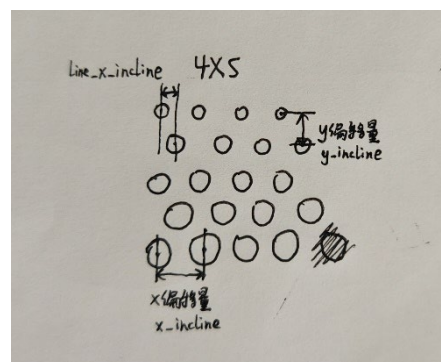 Line_x_incline 4X5
y偏移量
y_incline
x偏移量
x_incline